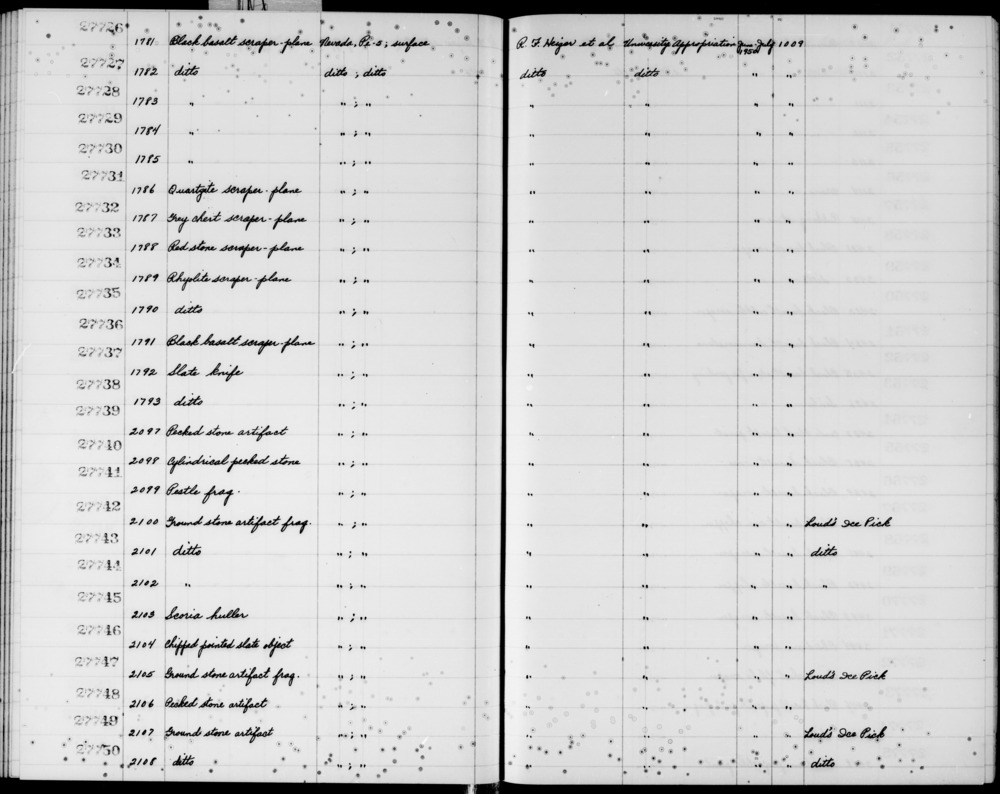 27726
1781 Black basalt scraper-plane Nevada, Pe-3; surface R. F. Heizer et al University Appropriation Jun-July 1950 1009
27727
1782 ditto ditto ; ditto ditto ditto " "
27728
1783 " " ; " " " " "
27729
1784 " " ; " " " " "
27730
1785 " " ; " " " " "
27731
1786 Quartzite scraper-plane " ; " " " " "
27732
1787 Grey chert scraper-plane " ; " " " " "
27733
1788 Red stone scraper-plane " ; " " " " "
27734
1789 Rhyolite scraper-plane " ; " " " " "
27735
1790 ditto " ; " " " " "
27736
1791 Black basalt scraper-plane " ; " " " " "
27737
1792 Slate knife " ; " " " " "
27738
1793 ditto " ; " " " " "
27739
2097 Pecked stone artifact " ; " " " " "
27740
2098 Cylindrical pecked stone " ; " " " " "
27741
2099 Pestle frag. " ; " " " " "
27742
2100 Ground stone artifact frag. " ; " " " " " Loud's Ice Pick
27743
2101 ditto " ; " " " " " ditto
27744
2102 " " ; " " " " " "
27745
2103 Scoria huller " ; " " " " "
27746
2104 Chipped pointed slate object " ; " " " " "
27747
2105 Ground stone artifact frag. " ; " " " " " Loud's Ice Pick
27748
2106 Pecked stone artifact " ; " " " " "
27749
2107 Ground stone artifact " ; " " " " " Loud's Ice Pick
27750
2108 ditto " ; " " " " " ditto